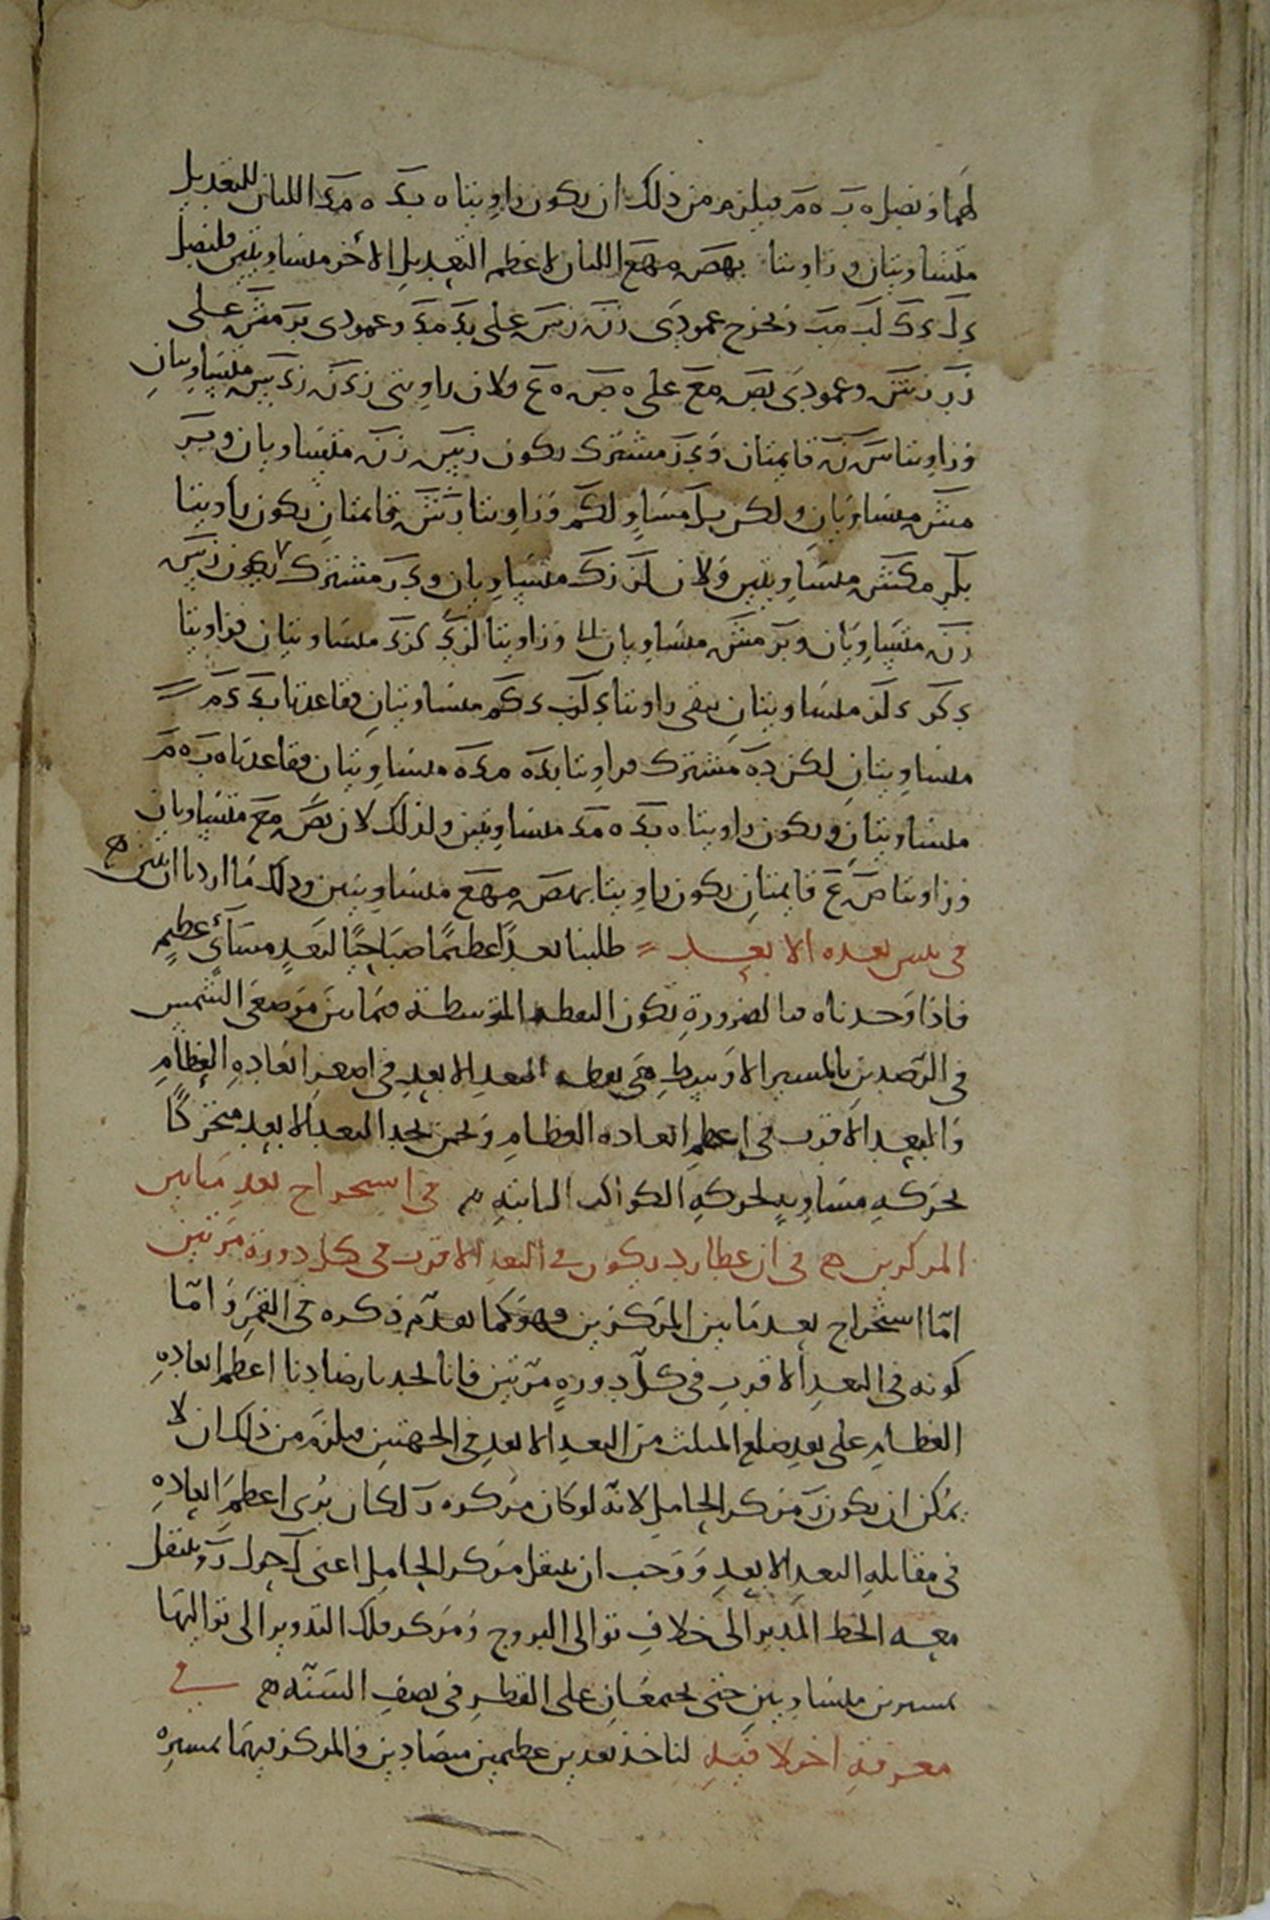 لهما ونصل ه ب ه م فيلزم من ذلك ان يكون زاويتا ه ب د ه م د اللتان للتعديل
متساويتان وزاويتا ب ه ص م ه ع اللتان لاعظم التعديل الاخر متساويتين فلنصل
ى ل ى ك ل ب م ب ونخرج عمودى ز ن ز س على ب د م د وعمودى ب ر م ش على
وعمودى ب ص م ع على ه ص ه ع ولان زاويتى متساويتان
وزاويتا س ن قايمتان و ى ز مشترك يكون ز س ز ن متساويان و ب ر
م ش متساويان ولكن ب ل مساو ل ك م وزاويتا ر ش قايمتان يكون زاويتا
ب ل ر م ك ش متساويتين ولان ل ز ز ك متساويان و ى ز مشترك ويكون ز س
ز ن متساويان و ب ر م ش متساويان وزاويتا ل ز ى ك ز ى متساويتان فزاويتا
ى ك ز ى ل ز متساويتان يبقى زاويتا ى ل ب ى ك م متساويتان فقاعدتا ب ى ى م
متساويتان لكن د ه مشترك فزاويتا ب د ه م د ه متساويتان فقاعدتا ه ب ه م
متساويتان ويكون زاويتا ه ب د ه م د متساويتين ولذلك لان ب ص م ع متساويان
وزاويتا ص ع قايمتان يكون زاويتا ب ه ص م ه ع متساويتين وذلك ما اردنا ان نبين
فى بعده الابعد طلبنا بعدًا عظيمًا صباحيًا لبعدٍ مسائىٍ عظيمٍ
فاذا وجدناه فبالضرورة تكون النقطة المتوسطة فيما بين موضعى الشمس
فى الرصدين بالمسير الاوسط هى نقطة البعد الابعد فى اصغر ابعاده العظام
والبعد الاقرب فى اعظم ابعاده العظام ونحن نجد البعد الابعد متحركًا
بحركه مساويه لحركه الكواكب الثابته فى استخراج بعد ما بين
المركزين فى ان عطارد يكون فى البعد الاقرب فى كل دورة مرتين
امّا استخراج بعد ما بين المركزين فهو كما تقدّم ذكره فى القمر وامّا
كونه فى البعد الاقرب فى كلّ دورهٍ مرّتين فانا نجد بارصادنا اعظم ابعاده
العظام على بعد ضلع المثلث من البعد الابعد فى الجهتين فيلزم من ذلك ان لا
يمكن ان يكون د مركز الحامل لانّه لو كان مركزه د لكان يرى اعظم ابعاده
فى مقابله البعد الابعد ووجب ان ينتقل مركز الحامل اعنى حول وينتقل
معه الخط المدير الى خلاف توالى البروج ومركز فلك التدوير الى تواليها
بمسيرين متساويين حتى يجتمعان على القطر فى نصف السنّه فى
معرفة اختلافيه لناخذ بعدين عظيمين متضادين والمركز فيهما بمسيره